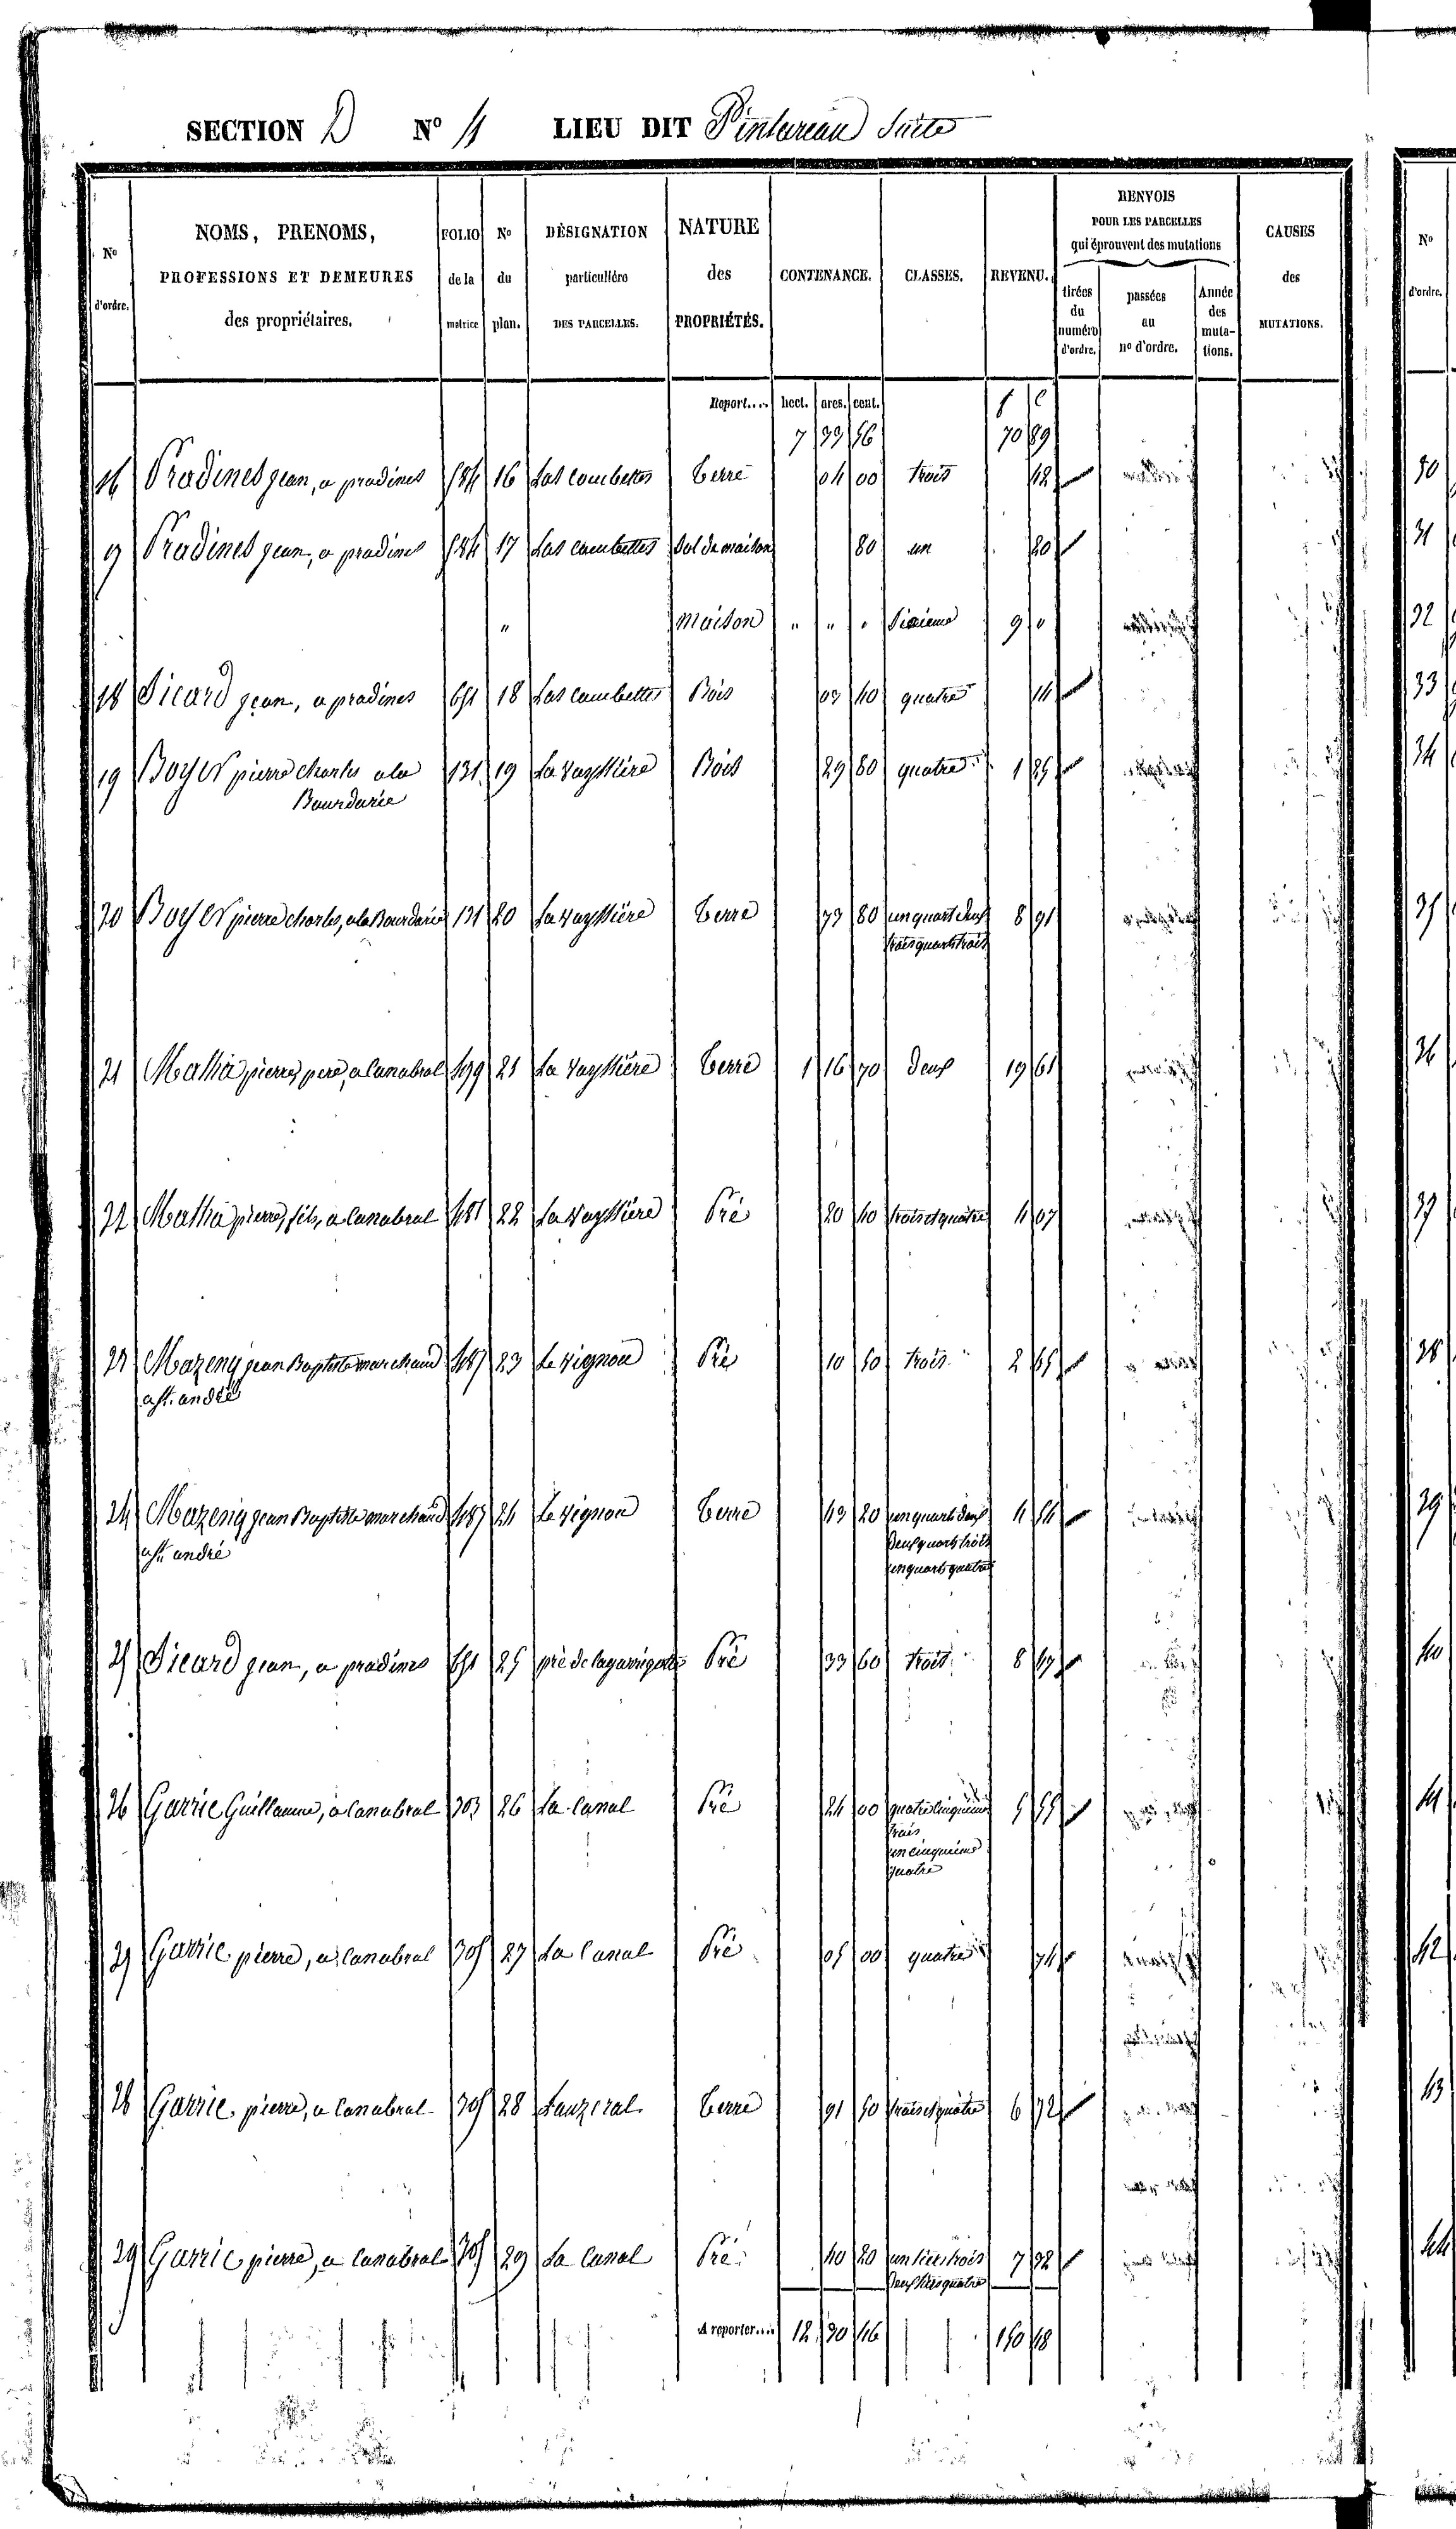 SECTION D N° 4 LIEU DIT Pintureau Suite
N° d'ordre. NOMS, PRENOMS, PROFESSIONS ET DEMEURES des propriétaires. FOLIO de la matrice N° du plan. DÉSIGNATION particulière DES PARCELLES. NATURE des PROPRIÉTÉS. CONTENANCE. CLASSES. REVENU. RENVOIS POUR LES PARCELLES qui éprouvent des mutations tirées du numéro d'ordre. passées au n° d'ordre. Année des mutations. CAUSES des MUTATIONS.
Report.... hect. ares. cent. f c
7 39 56 70 89
16 Pradines jean, a pradines 584 16 Las combettes Terre 04 00 trois 42
17 Pradines jean, a pradines 584 17 Las combettes Sol de maison 80 un 20
" maison " " " Sixieme 9 "
18 Sicard jean, a pradines 651 18 Las combettes Bois 03 40 quatre 14
19 Boyer pierre charles a la 131 19 La Vayssière Bois 29 80 quatre 1 25
Bourdarie
20 Boyer pierre charles, a la Bourdarie 131 20 La Vayssière Terre 73 80 un quart deux 8 91
trois quarts trois
21 Mathia pierre, pere, a Canabral 479 21 La Vayssière Terre 1 16 70 deux 19 61
22 Mathia pierre, fils, a Canabral 481 22 La Vayssière Pré 20 40 trois et quatre 4 07
23 Mazenq jean Baptiste marchand 487 23 Le Vignou Pré 10 50 trois 2 65
a st. andré
24 Mazenq jean Baptiste marchand 487 24 Le Vignou Terre 43 20 un quart deux 4 54
a st. andré deux quarts trois
un quart quatre
25 Sicard jean, a pradines 651 25 pré de lagarrigette Pré 33 60 trois 8 47
26 Garric Guillaume, a Canabral 303 26 La Canal Pré 24 00 quatre cinquieme 5 55
trois
un cinquieme
quatre
27 Garric pierre, a Canabral 305 27 La Canal Pré 05 00 quatre 74
28 Garric pierre, a Canabral 305 28 Lauzeral Terre 91 50 trois et quatre 6 72
29 Garric pierre, a Canabral 305 29 La Canal Pré 40 20 un tiers trois 7 32
deux tiers quatre
A reporter.... 12 30 46 150 48
N° d'ordre.
30
31
32
33
34
35
36
37
38
39
40
41
42
43
44